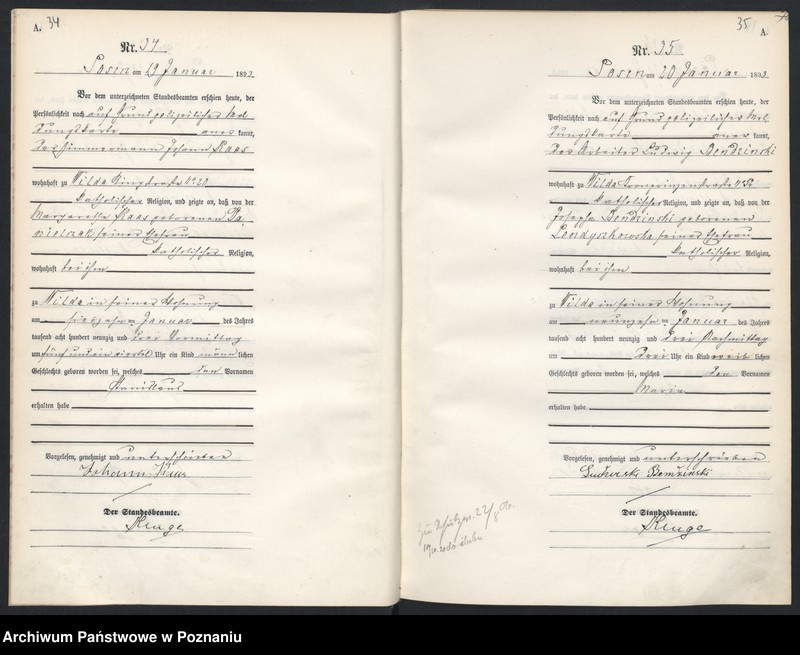 A. 34
Nr. 34
Posen am 19 Januar 1893
Vor dem unterzeichneten Standesbeamten erschien heute, der
Persönlichkeit nach auf Grund polizeilicher Mel
dungskarte anerkannt,
der Zimmermann Johann Kaas
wohnhaft zu Wilda Ringstraße No 20
katholischer Religion, und zeigte an, daß von der
Margaretha Kaas geborenen Da
nielczak seiner Ehefrau
katholischer Religion,
wohnhaft bei ihm
zu Wilda in seiner Wohnung
am siebzehn ten Januar des Jahres
tausend acht hundert neunzig und drei Vormittag
um fünf und ein viertel Uhr ein Kind männlichen
Geschlechts geboren worden sei, welches den Vornamen
Stanislaus
erhalten habe
Vorgelesen, genehmigt und unterschrieben
Johann Kaas
Der Standesbeamte.
Kruge
35 A.
Nr. 35
Posen am 20 Januar 1893
Vor dem unterzeichneten Standesbeamten erschien heute, der
Persönlichkeit nach auf Grund polizeilicher Mel
dungskarte anerkannt,
der Arbeiter Ludwig Bendzinski
wohnhaft zu Wilda Kronprinzenstraße
katholischer Religion, und zeigte an, daß von der
Josepha Bendzinski geborenen
seiner Ehefrau
katholischer Religion,
wohnhaft bei ihm
zu Wilda in seiner Wohnung
am neunzehn ten Januar des Jahres
tausend acht hundert neunzig und drei Nachmittag
um drei Uhr ein Kind weiblichen
Geschlechts geboren worden sei, welches den Vornamen
Maria
erhalten habe
Vorgelesen, genehmigt und unterschrieben
Der Standesbeamte.
Kruge
Archiwum Państwowe w Poznaniu